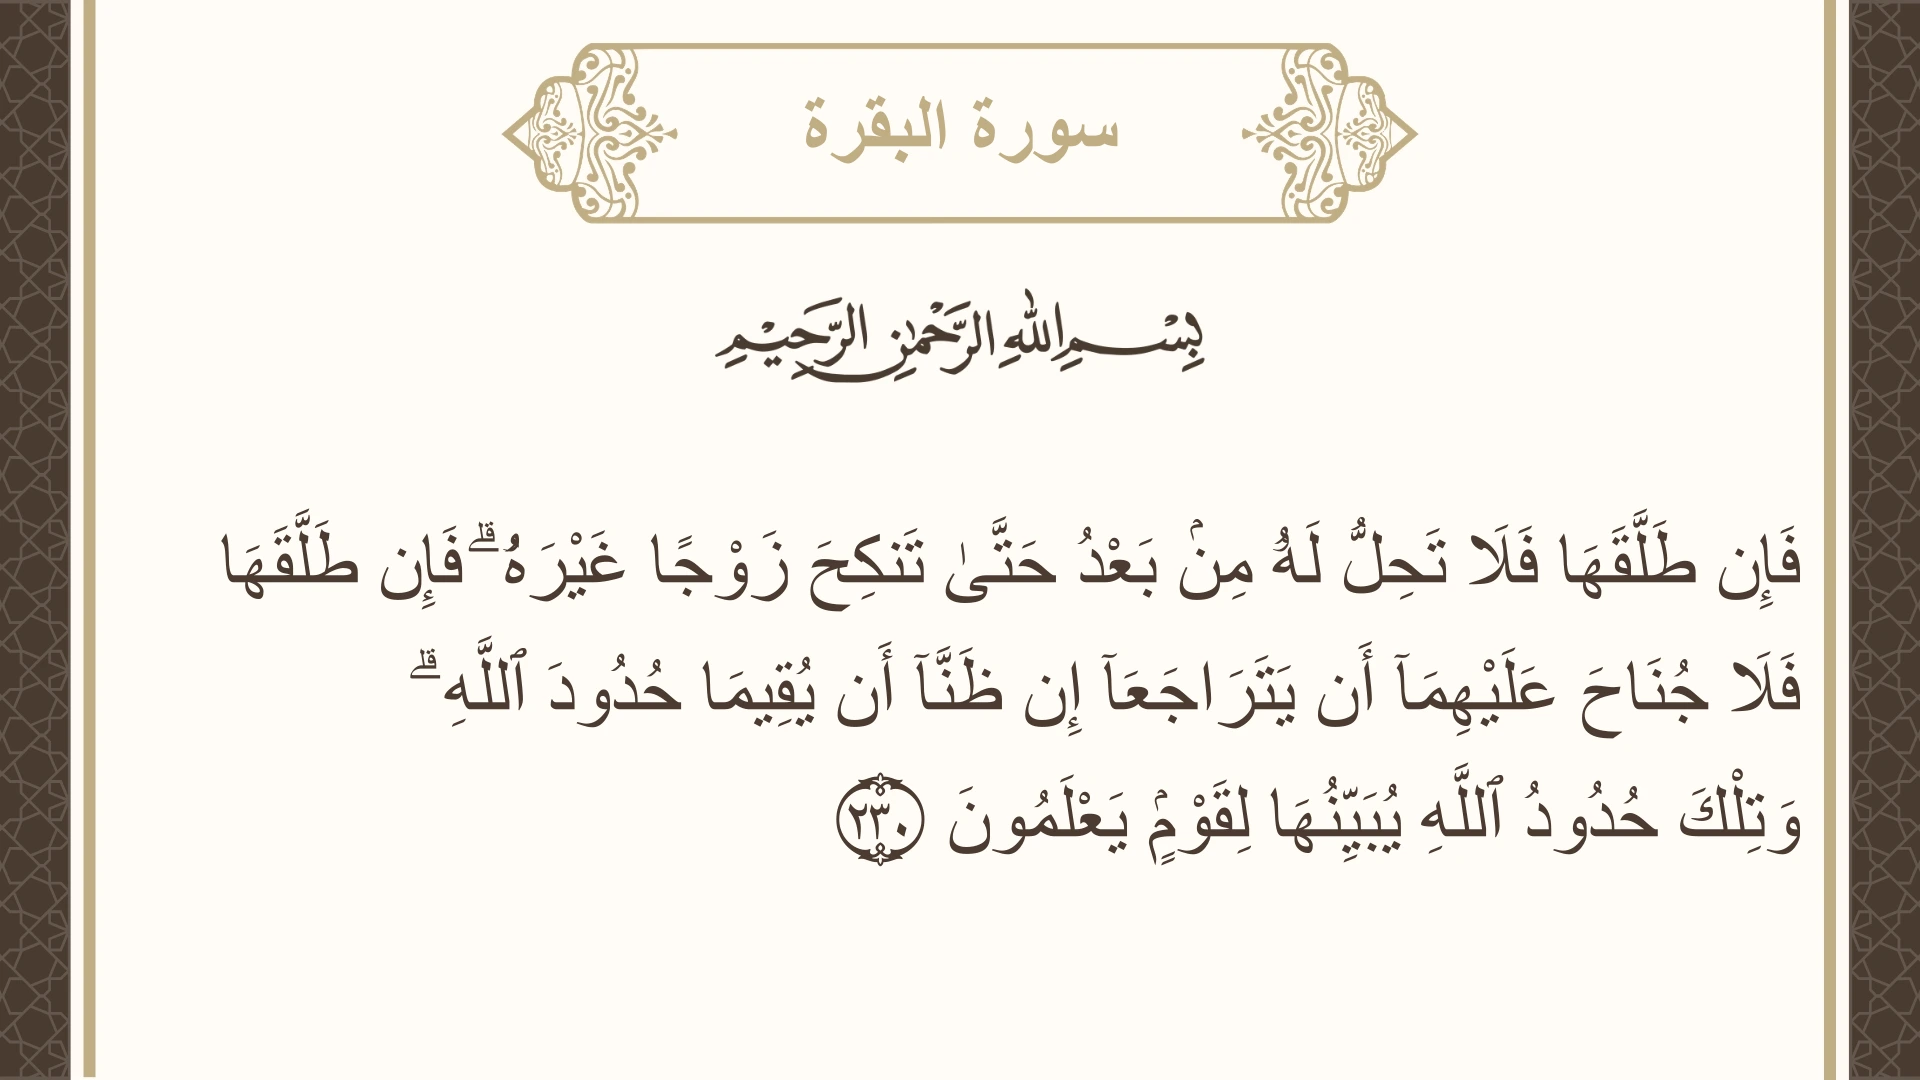 سورة البقرة
بِسْمِ اللهِ الرَّحْمٰنِ الرَّحِيْمِ
فَإِن طَلَّقَهَا فَلَا تَحِلُّ لَهُۥ مِنۢ بَعْدُ حَتَّىٰ تَنكِحَ زَوْجًا غَيْرَهُۥ ۗ فَإِن طَلَّقَهَا
فَلَا جُنَاحَ عَلَيْهِمَآ أَن يَتَرَاجَعَآ إِن ظَنَّآ أَن يُقِيمَا حُدُودَ ٱللَّهِ ۗ
وَتِلْكَ حُدُودُ ٱللَّهِ يُبَيِّنُهَا لِقَوْمٍۢ يَعْلَمُونَ ٢٣٠